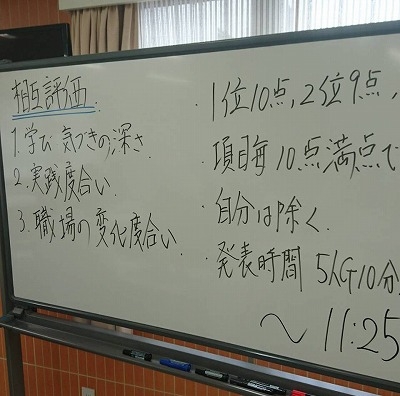 相互評価
1. 学び 気づきの深さ
2. 実践度合い
3. 職場の変化度合い
・1位10点, 2位9点,
・項目毎10点満点で
・自分は除く
・発表時間 5人G10分
〜11:25